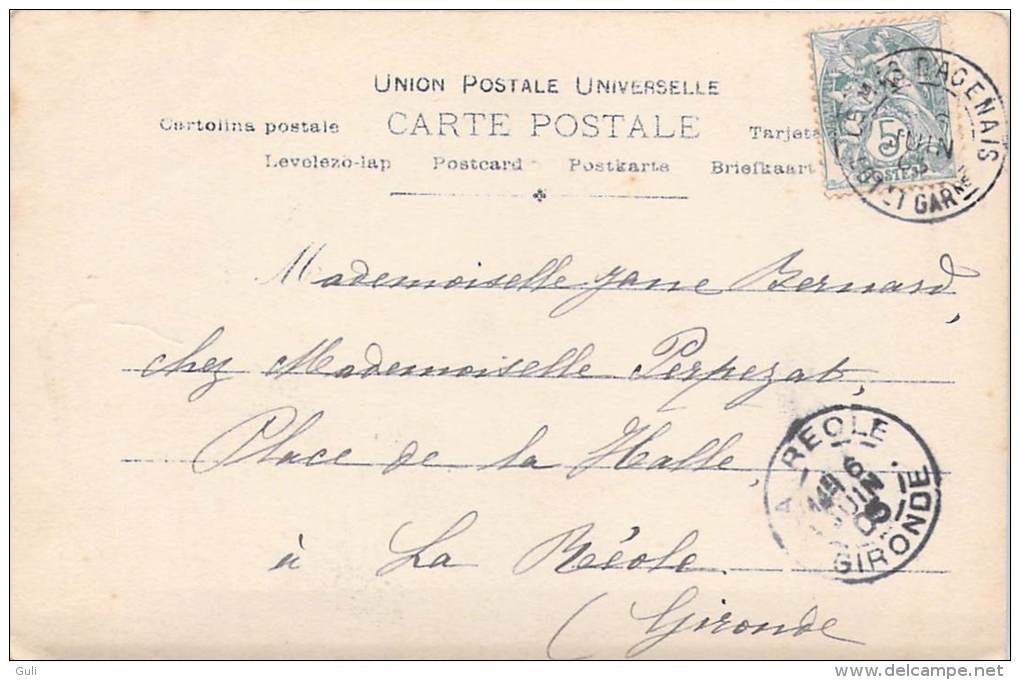 UNION POSTALE UNIVERSELLE
Cartolina postale CARTE POSTALE Tarjeta
Levelezo-lap Postcard Postkarte Briefkaart
5
POSTES
D'AGENAIS
6
JUIN
LOT-ET-GARNE
Mademoiselle Jane Bernard,
chez Mademoiselle Perpezat,
Place de la Halle,
à La Réole
(Gironde
LA REOLE
6
JUIN
GIRONDE
Guli
delcampe.net